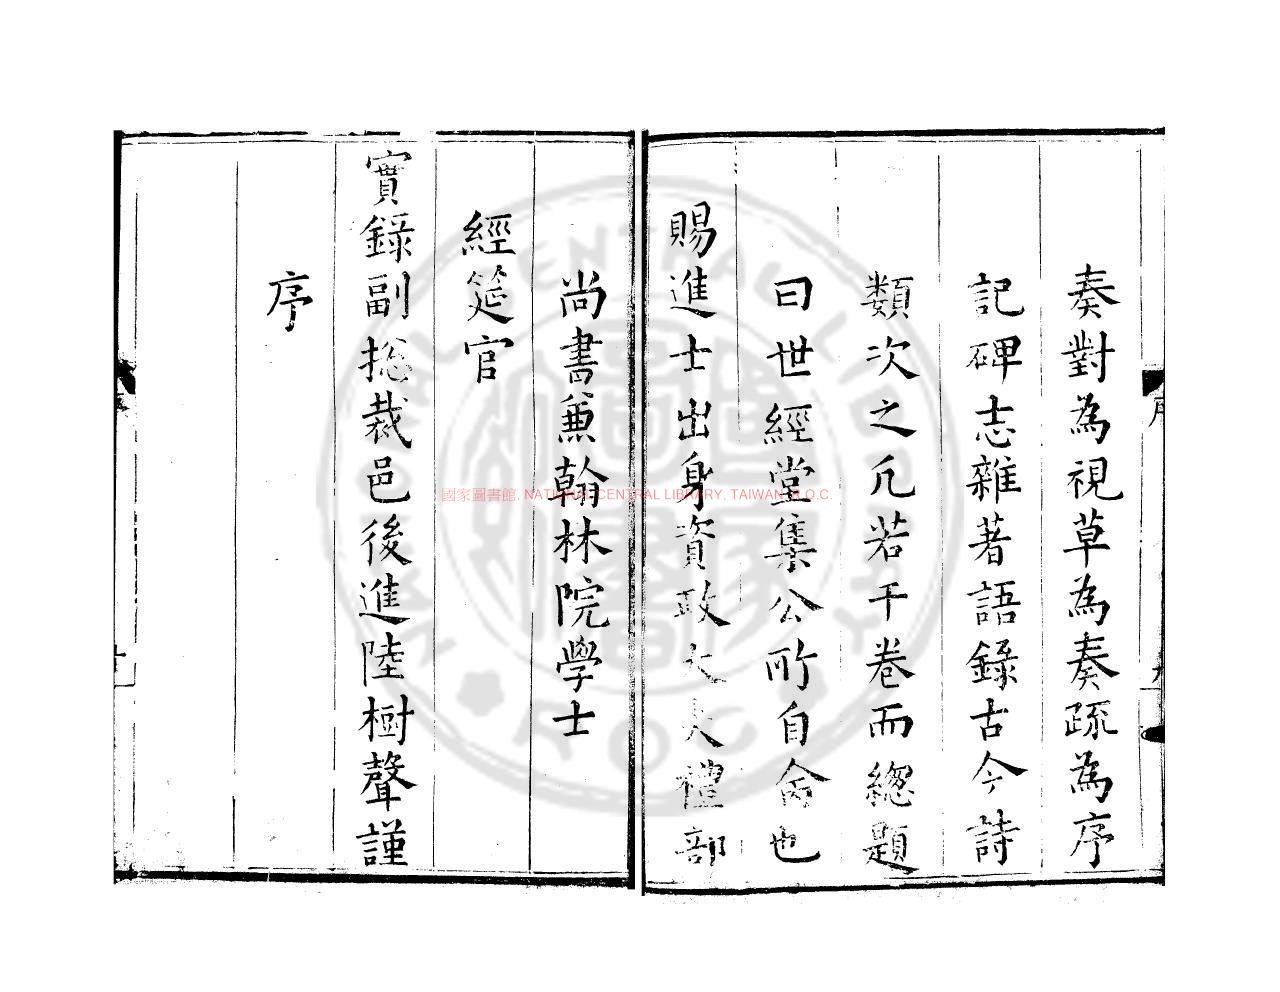 奏對為視草為奏疏為序
記碑志雜著語錄古今詩
類次之凡若干卷而總題
曰世經堂集公所自命也
賜進士出身資政大夫禮部
尚書兼翰林院學士
經筵官
實錄副捴裁邑後進陸樹聲謹
序
國家圖書館, NATIONAL CENTRAL LIBRARY, TAIWAN, R.O.C.
NATIONAL CENTRAL LIBRARY
ROC